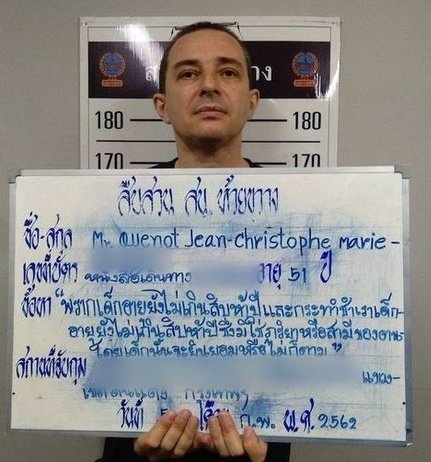 180 180
170 170
สืบสวน สน.ห้วยขวาง
ชื่อ-สกุล Mr. Quenot Jean-Christophe marie-
เลขที่บัตร หนังสือเดินทาง อายุ 51 ปี
ข้อหา "พรากเด็กอายุยังไม่เกินสิบห้าปีและกระทำชำเราเด็ก-
อายุยังไม่เกินสิบห้าปีซึ่งมิใช่ภริยาหรือสามีของตน
โดยเด็กนั้นจะยินยอมหรือไม่ก็ตาม
สถานที่จับกุม แขวง-
กรุงเทพฯ
วันที่ 5 ก.พ. พ.ศ. 2562